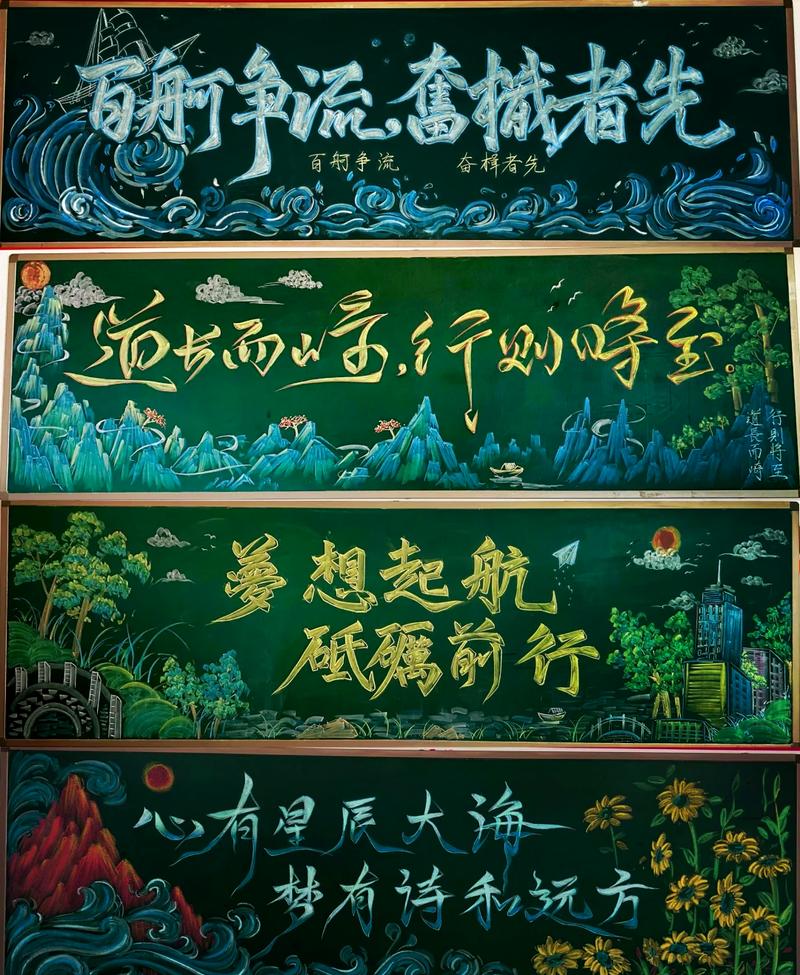 百舸争流,奮檝者先
百舸争流 奋楫者先
道长而崎,行则将至。
行則將至
道長而崎
夢想起航
砥礪前行
心有星辰大海
梦有诗和远方